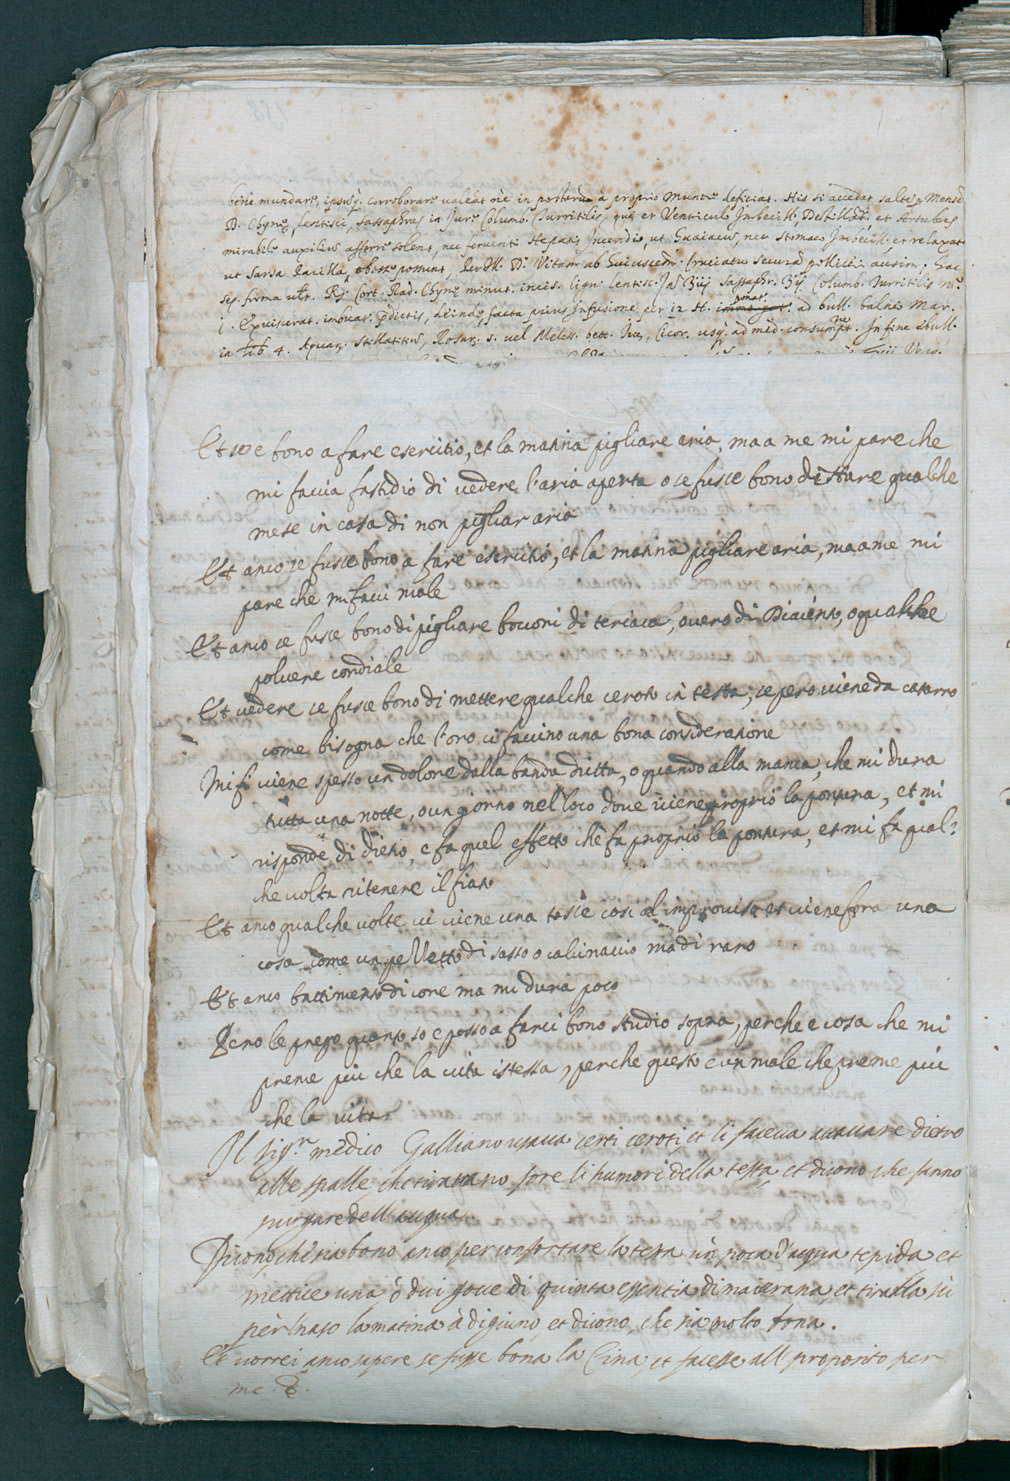 bene mundare, ipsusq. corroborare valeat ne in posterum à proprio munere deficiat. His si accedat saltem Mense
D. Chynę, lentisci, sassaphras in Jure Columb. Turritilis, quę et Ventriculo Imbecill. et
mirabile auxilium afferre solent, nec ferventi Hepatis Incendio, ut Guaiacum, nec stomaco Imbecill. et relaxato
ut Sarsa Parilla, obesse possunt, D. Vitam ab huiuscem. Cruciatu securam polliceri ausim. Hac
seq. forma utr. Rx. Cort. Rad. Chynę minut. incis. lign. lentisc. sassaphr. Columb. Turritilis
j. Exviscerat. pdictis, deinde facta prius Infusione per 12 H. ad bull. balnei Mar.
in lib 4. Aquar. Stillatitior. Rosar. s. vel Meliss. Cicor. usq. ad med. consumpt. In fine ebull.
Et se e bono a fare esercitio, et la matina pigliare aria, ma a me mi pare che
mi faccia fastidio di vedere l'aria aperta o se fusse bono di stare qualche
mese in casa di non pigliar aria
Et anco se fusse bono a fare esercitio, et la matina pigliare aria, ma a me mi
pare che mi facci male
Et anco se fusse bono di pigliare bocconi di teriaca, overo di Diacinto, o qualche
polvere cordiale
Et vedere se fusse bono di mettere qualche ceroto in testa; se pero viene da catarro
come bisogna che loro ci faccino una bona consideratione
Mi viene spesso un dolore dalla banda dritta, o quando alla manca, che mi dura
tutta una notte, o un giorno nel loco dove viene proprio la pontura, et mi
risponde di dietro, e fa quel effetto che fa proprio la pontura, et mi fa qual=
che volta ritenere il fiato
Et anco qualche volte vi viene una tosse cosi al improviso et viene fora una
cosa come un pezzetto di sasso o calcinaccio ma di raro
Et anco battimento di core ma mi dura poco
Pero le prego quanto so e posso a farci bono studio sopra, perche e cosa che mi
preme piu che la vita istessa, perche questo e un male che preme piu
che la vita
Il sigr. medico Galliano usava certi ceroti et li faceva attaccare dietro
alle spalle che tiravano fore li humori della testa et dicono che fanno
purgare dell acqua
Dicono che sia bono anco per confortare la testa un poca d'acqua tepida et
mettice una ò dui gocce di quinta essentia di maiorana, et tiralla sù
per naso la matina à digiuno, et dicono, che sia molto bona.
Et vorrei anco sapere se fusse bona la Cina, et facesse all proposito per
me. &.